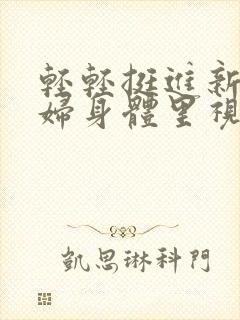 輕輕挺進新
婦身體里視
凱思琳科門